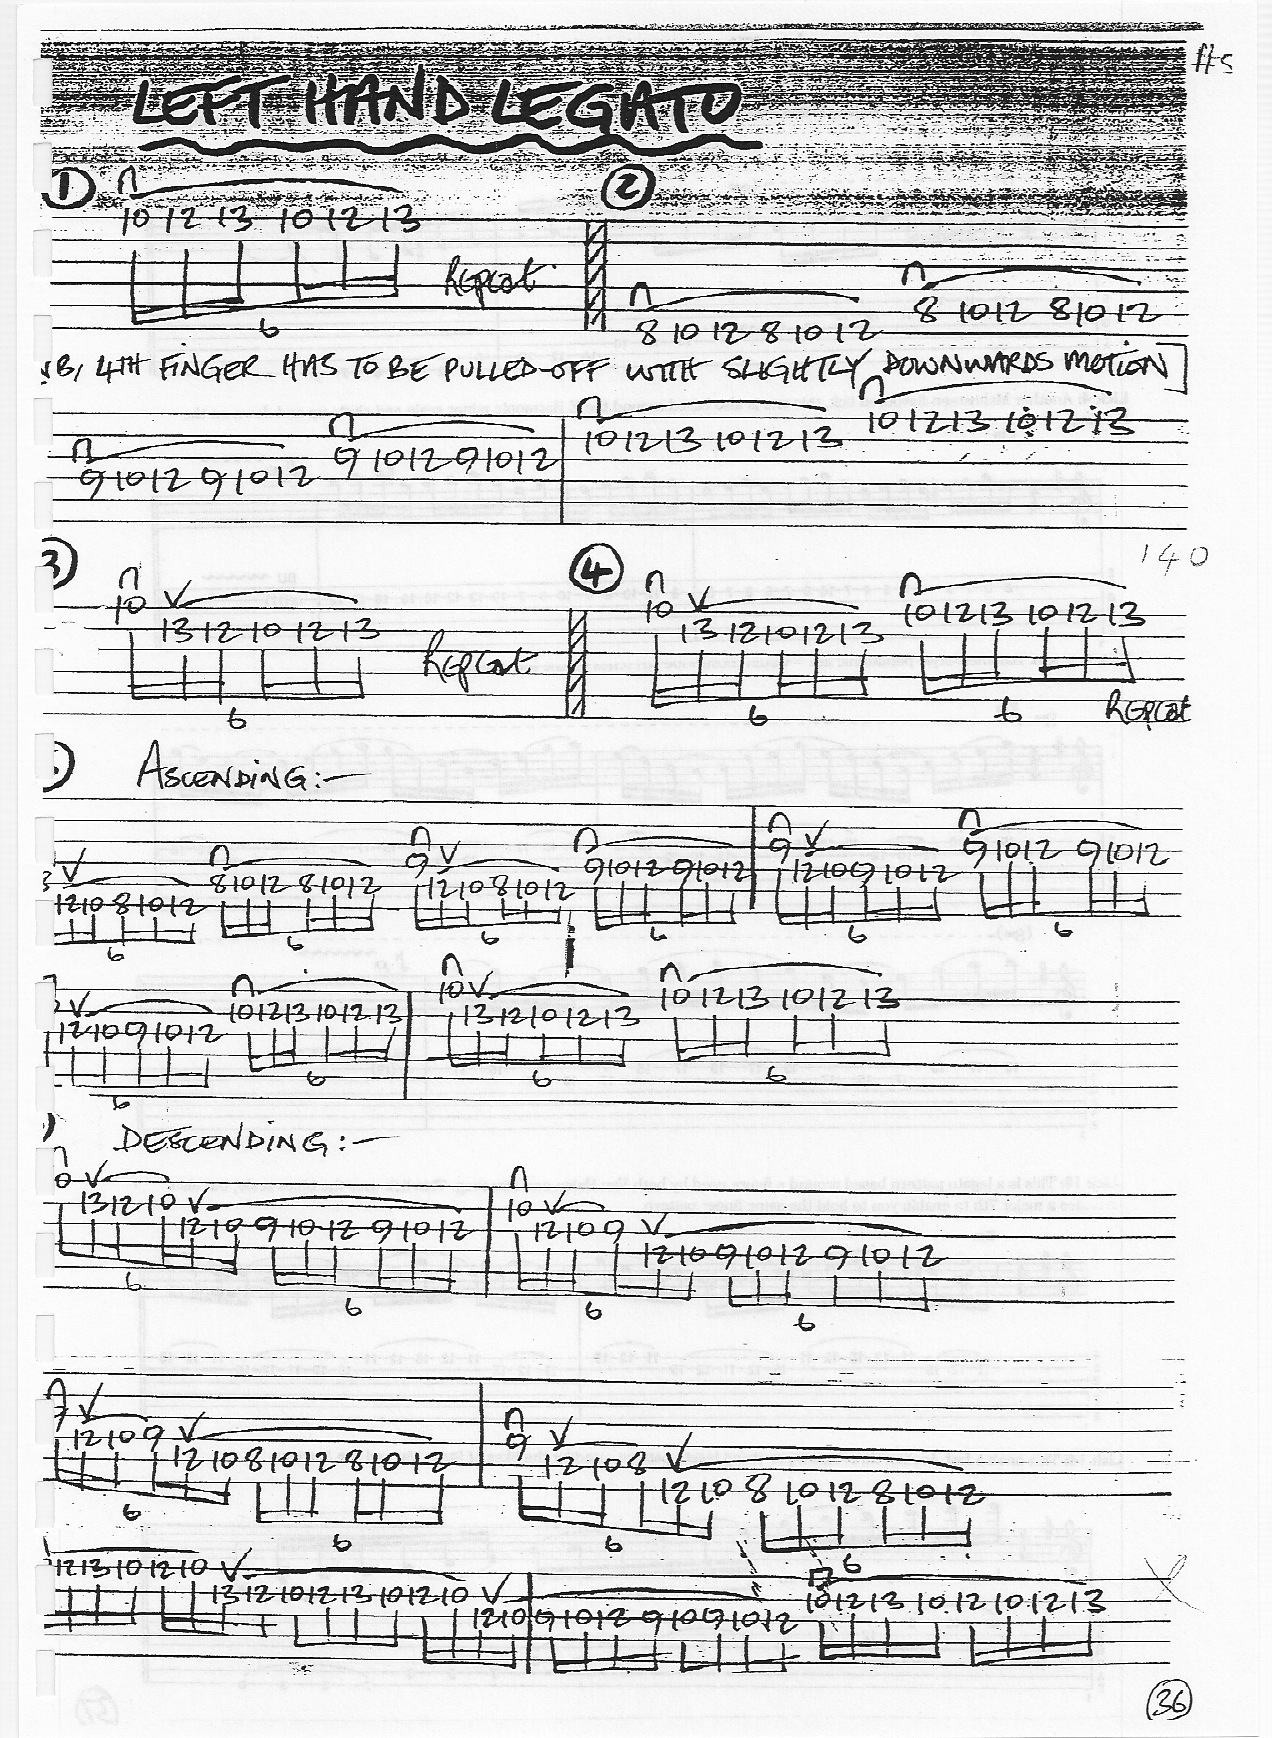 #5
LEFT HAND LEGATO
1 2
10 12 13 10 12 13
Repeat
6
8 10 12 8 10 12 8 10 12 8 10 12
NB, 4TH FINGER HAS TO BE PULLED-OFF WITH SLIGHTLY DOWNWARDS MOTION]
9 10 12 9 10 12 9 10 12 9 10 12 10 12 13 10 12 13 10 12 13 10 12 13
140
3) 4
10 13 12 10 12 13 Repeat 10 13 12 10 12 13 10 12 13 10 12 13
6 6 6 Repeat
ASCENDING:-
12 10 8 10 12 8 10 12 8 10 12 9 12 10 8 10 12 9 10 12 9 10 12 9 12 10 9 10 12 9 10 12 9 10 12
6 6 6 6 6 6
12 10 9 10 12 10 12 13 10 12 13 10 13 12 10 12 13 10 12 13 10 12 13
6 6 6 6
DESCENDING:-
13 12 10 12 10 9 10 12 9 10 12 10 12 10 9 12 10 9 10 12 9 10 12
6 6 6 6
12 10 9 12 10 8 10 12 8 10 12 9 12 10 8 12 10 8 10 12 8 10 12
6 6 6 6
12 13 10 12 10 13 12 10 12 13 10 12 10 12 10 9 10 12 9 10 9 10 12 10 12 13 10 12 10 12 13
36